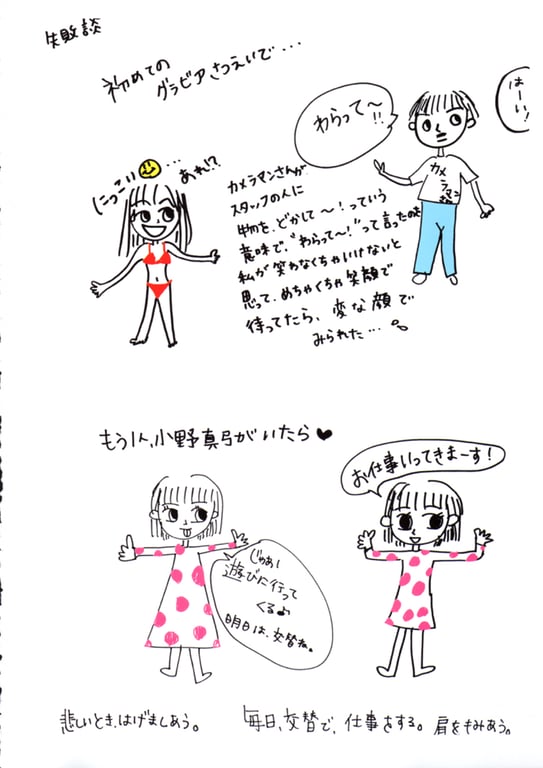 失敗談
初めての
グラビアさつえいで・・・
はーい!
わらって〜!!
カメラマン
にっこり
・・・
あれ!?
カメラマンさんが
スタッフの人に
物を、どかして〜!っていう
意味で、"わらって〜!"って言ったのを
私が笑わなくちゃいけないと
思って、めちゃくちゃ笑顔で
待ってたら、変な顔で
みられた・・・。
もう1人、小野真弓がいたら♥
お仕事いってきまーす!
じゃあ!
遊びに行って
くる♪
明日は、交替ね。
悲しいとき、はげましあう。
毎日、交替で、仕事をする。
肩をもみあう。